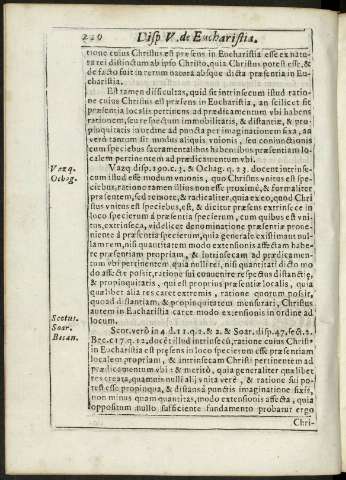 220 Disp V. de Eucharistia.
tione cuius Christus est præsens in Eucharistia esse ex natu
ra rei distinctum ab ipso Christo, quia Christus potest esse, &
de facto fuit in rerum natura absque dicta præsentia in Eu-
charistia.
Est tamen difficultas, quid sit intrinsecum istud ratio-
ne cuius Christus est præsens in Eucharistia, an scilicet sit
præsentia localis pertinens ad prædicamentum vbi habens
rationem, seu respectum immobilitatis, & distantiæ, & pro-
pinquitatis in ordine ad puncta per imaginationem fixa, an
verò tantum sit modus aliquis vnionis, seu coniunctionis
cum speciebus sacramentalibus habentibus præsentiam lo-
calem pertinentem ad prædicamentum vbi.
Vazq.
Ochag.
Vazq disp. 190. c. 3. & Ochag. q. 23. docent intrinse-
cum istud esse modum vnionis, quo Christus vnitus est spe-
ciebus, ratione tamen illius non esse proximè, & formaliter
præsentem, sed remotè, & radicaliter, quia ex eo, quod Chri
stus vnitus est speciebus, est, & dicitur præsens extrinsece in
loco specierum à præsentia specierum, cum quibus est vni-
tus, extrinseca, videlicet denominatione præsentiæ prone-
niente à præsentia specierum, quia generale existimant nul-
lam rem, nisi quantitatem modo extensionis affectam habe-
re præsentiam propriam, & intrinsecam ad prædicamen-
tum vbi pertinentem, quia nulli rei, nisi quantitati dicto mo
do affectæ possit, ratione sui conuenire respectus distantiæ,
& propinquitatis, qui est proprius præsentiæ localis, quia
quælibet alia res caret extremis, ratione quorum possit,
quoad distantiam, & propinquitatem mensurari, Christus
autem in Eucharistia caret modo extensionis in ordine ad
locum.
Scotus.
Soar.
Becan.
Scot. verò in 4 d. 11. q. 2. & 2. & Soar. disp. 47, sect. 2.
Bec. c 17. q. 12. docet illud intrinsecũ, ratione cuius Christ'
in Eucharistia est præsens in loco specierum esse præsentiam
localem propriam, & intrinsecam Christi pertinentem ad
prædicamentum vbi: & meritò, quia generaliter quælibet
res creata, quamuis nulli alij vnita verè, & ratione sui po-
test esse propinqua, & distans à punctis imaginatione fixis,
non minus quam quantitas, modo extensionis affecta, quia
oppositum nullo sufficiente fundamento probatur ergo
Chri-